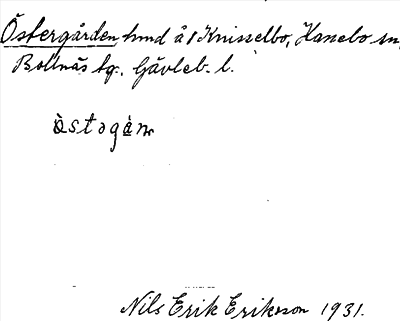 Östergården, hmd å 1 Knisselbo, Hanebo sn,
Bollnäs tg., Gävleb. l.
östogä̀n
Nils Erik Eriksson 1931.